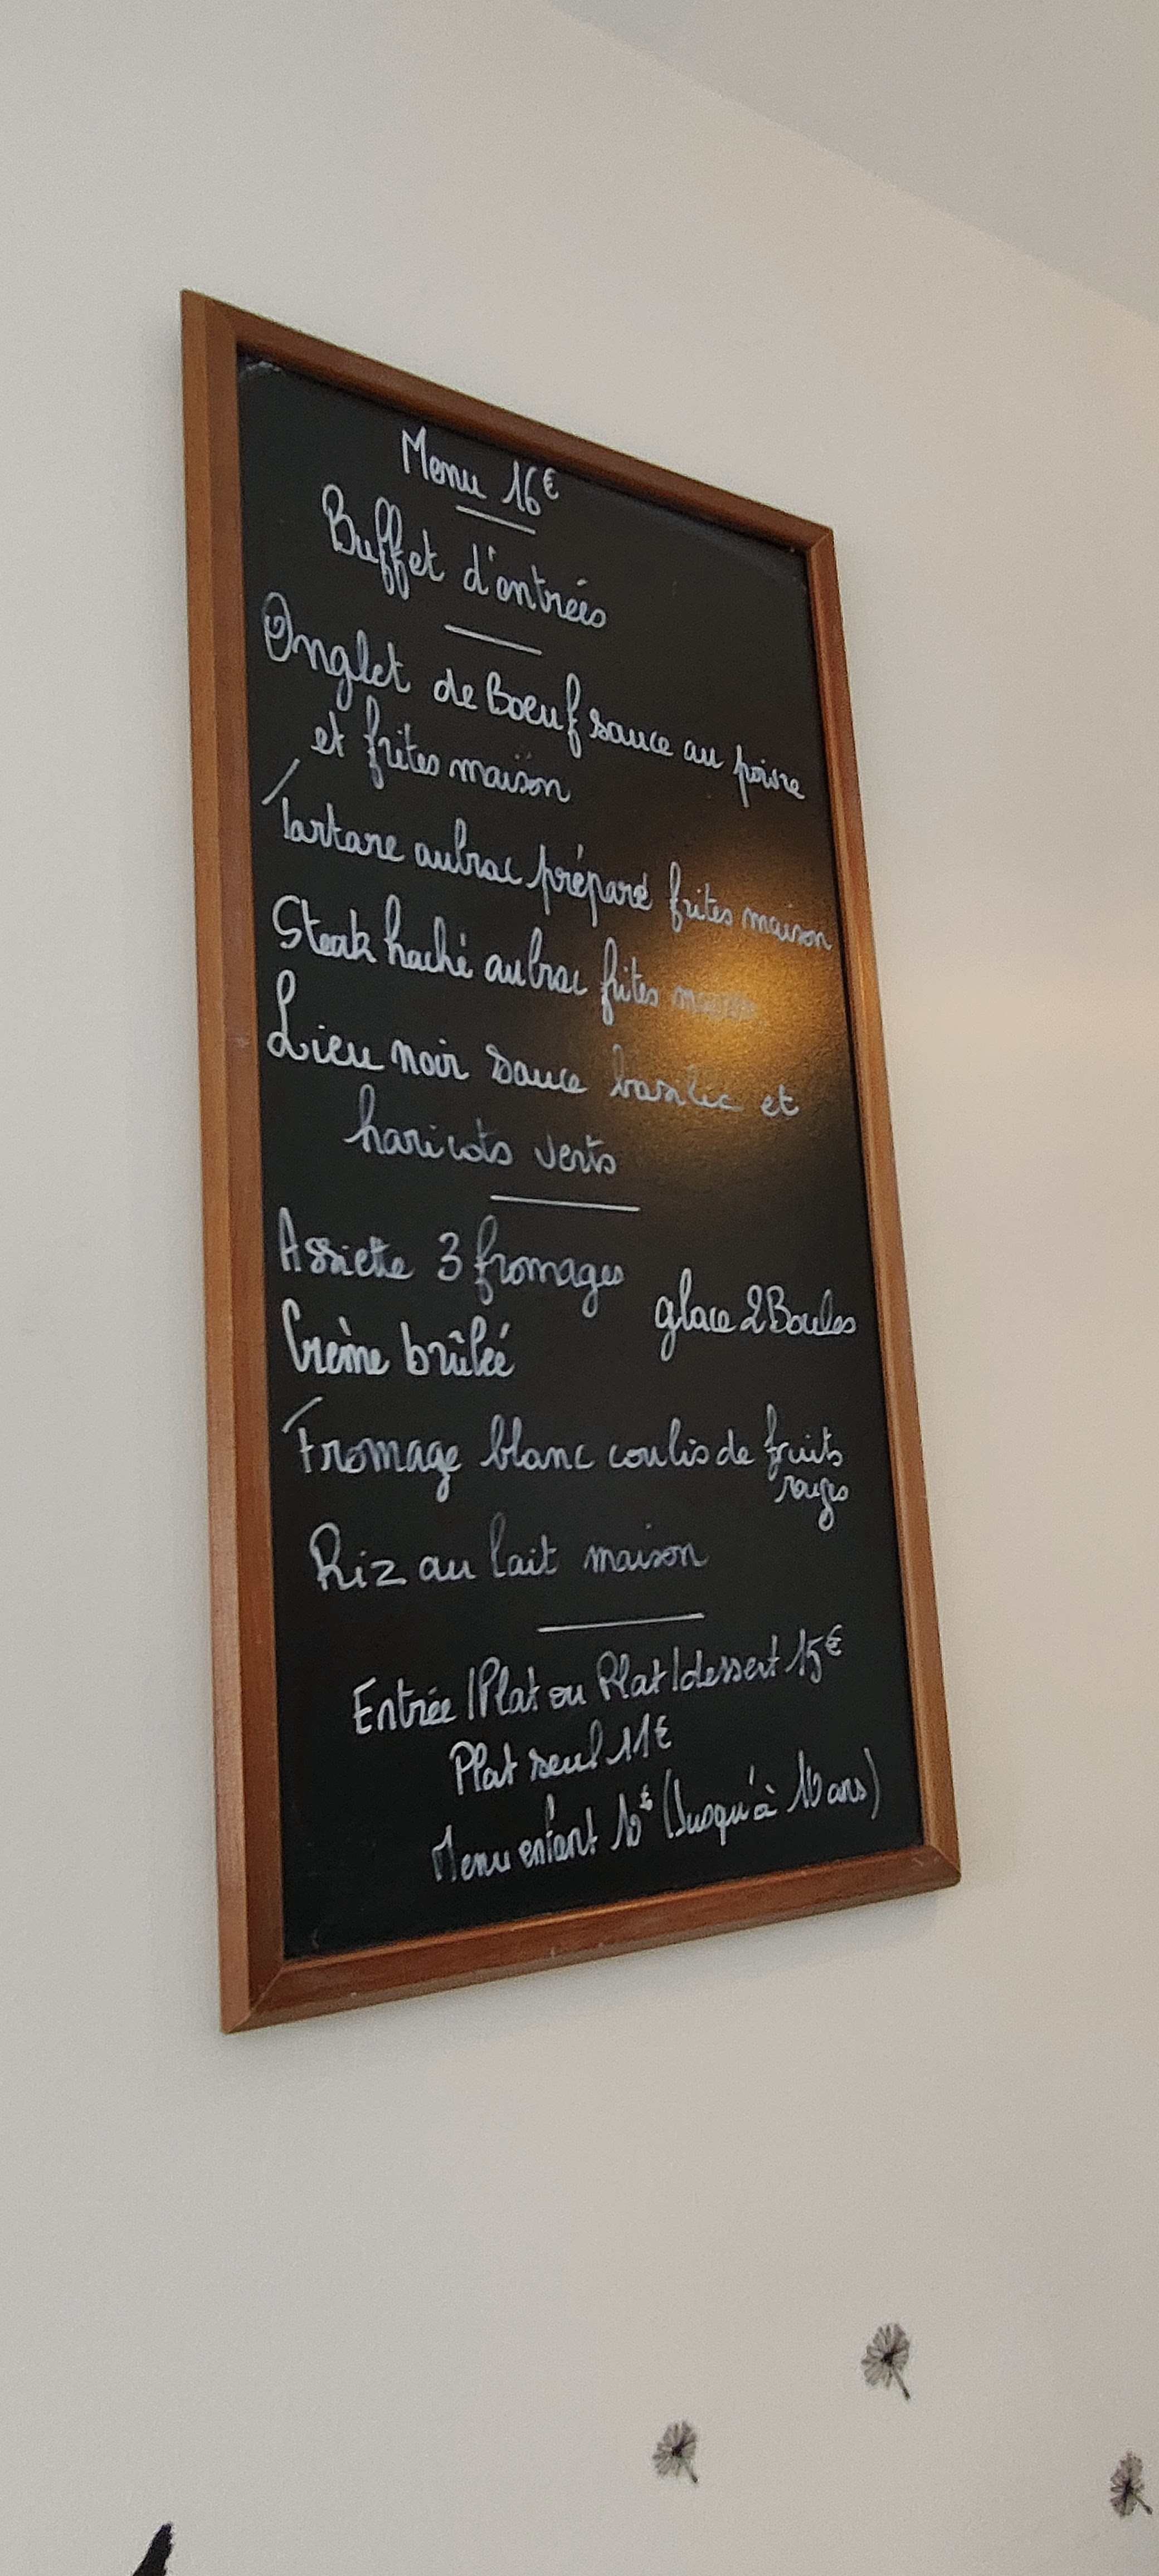 Menu 16€
Buffet d'entrées
Onglet de Boeuf sauce au poivre
et frites maison
Tartare aubrac préparé frites maison
Steak haché aubrac frites maison
Lieu noir sauce basilic et
haricots verts
Assiette 3 fromages
glace 2 Boules
Crème brûlée
Fromage blanc coulis de fruits
rouges
Riz au lait maison
Entrée/Plat ou Plat/dessert 15€
Plat seul 11€
Menu enfant 10€ (Jusqu'à 10 ans)